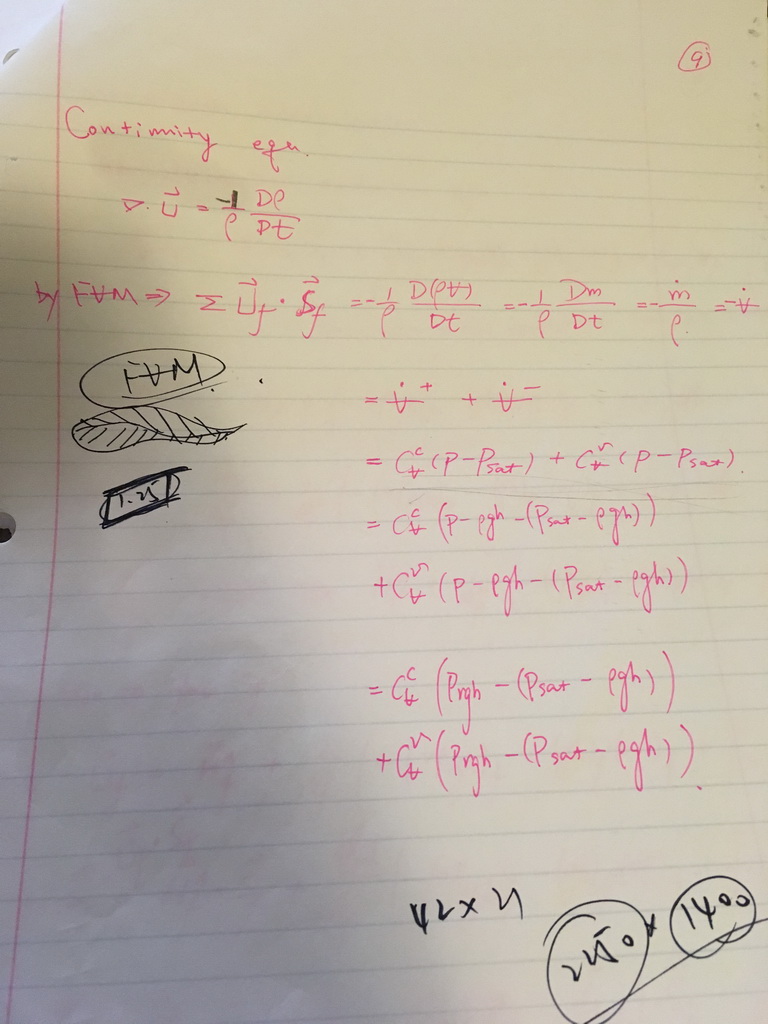 9
Continuity equ.
∇·U⃗ = -1/ρ Dρ/Dt
by FVM ⇒ Σ U⃗_f · S⃗_f = -1/ρ D(ρV̶)/Dt = -1/ρ Dm/Dt = -ṁ/ρ = -V̶̇
FVM
= V̶̇⁺ + V̶̇⁻
= C_V̶^c (P-P_sat) + C_V̶^v (P-P_sat).
1.25
= C_V̶^c (P-ρgh-(P_sat-ρgh))
+ C_V̶^v (P-ρgh-(P_sat-ρgh))
= C_V̶^c (P_rgh-(P_sat-ρgh))
+ C_V̶^v (P_rgh-(P_sat-ρgh)).
42×21
2250×1400